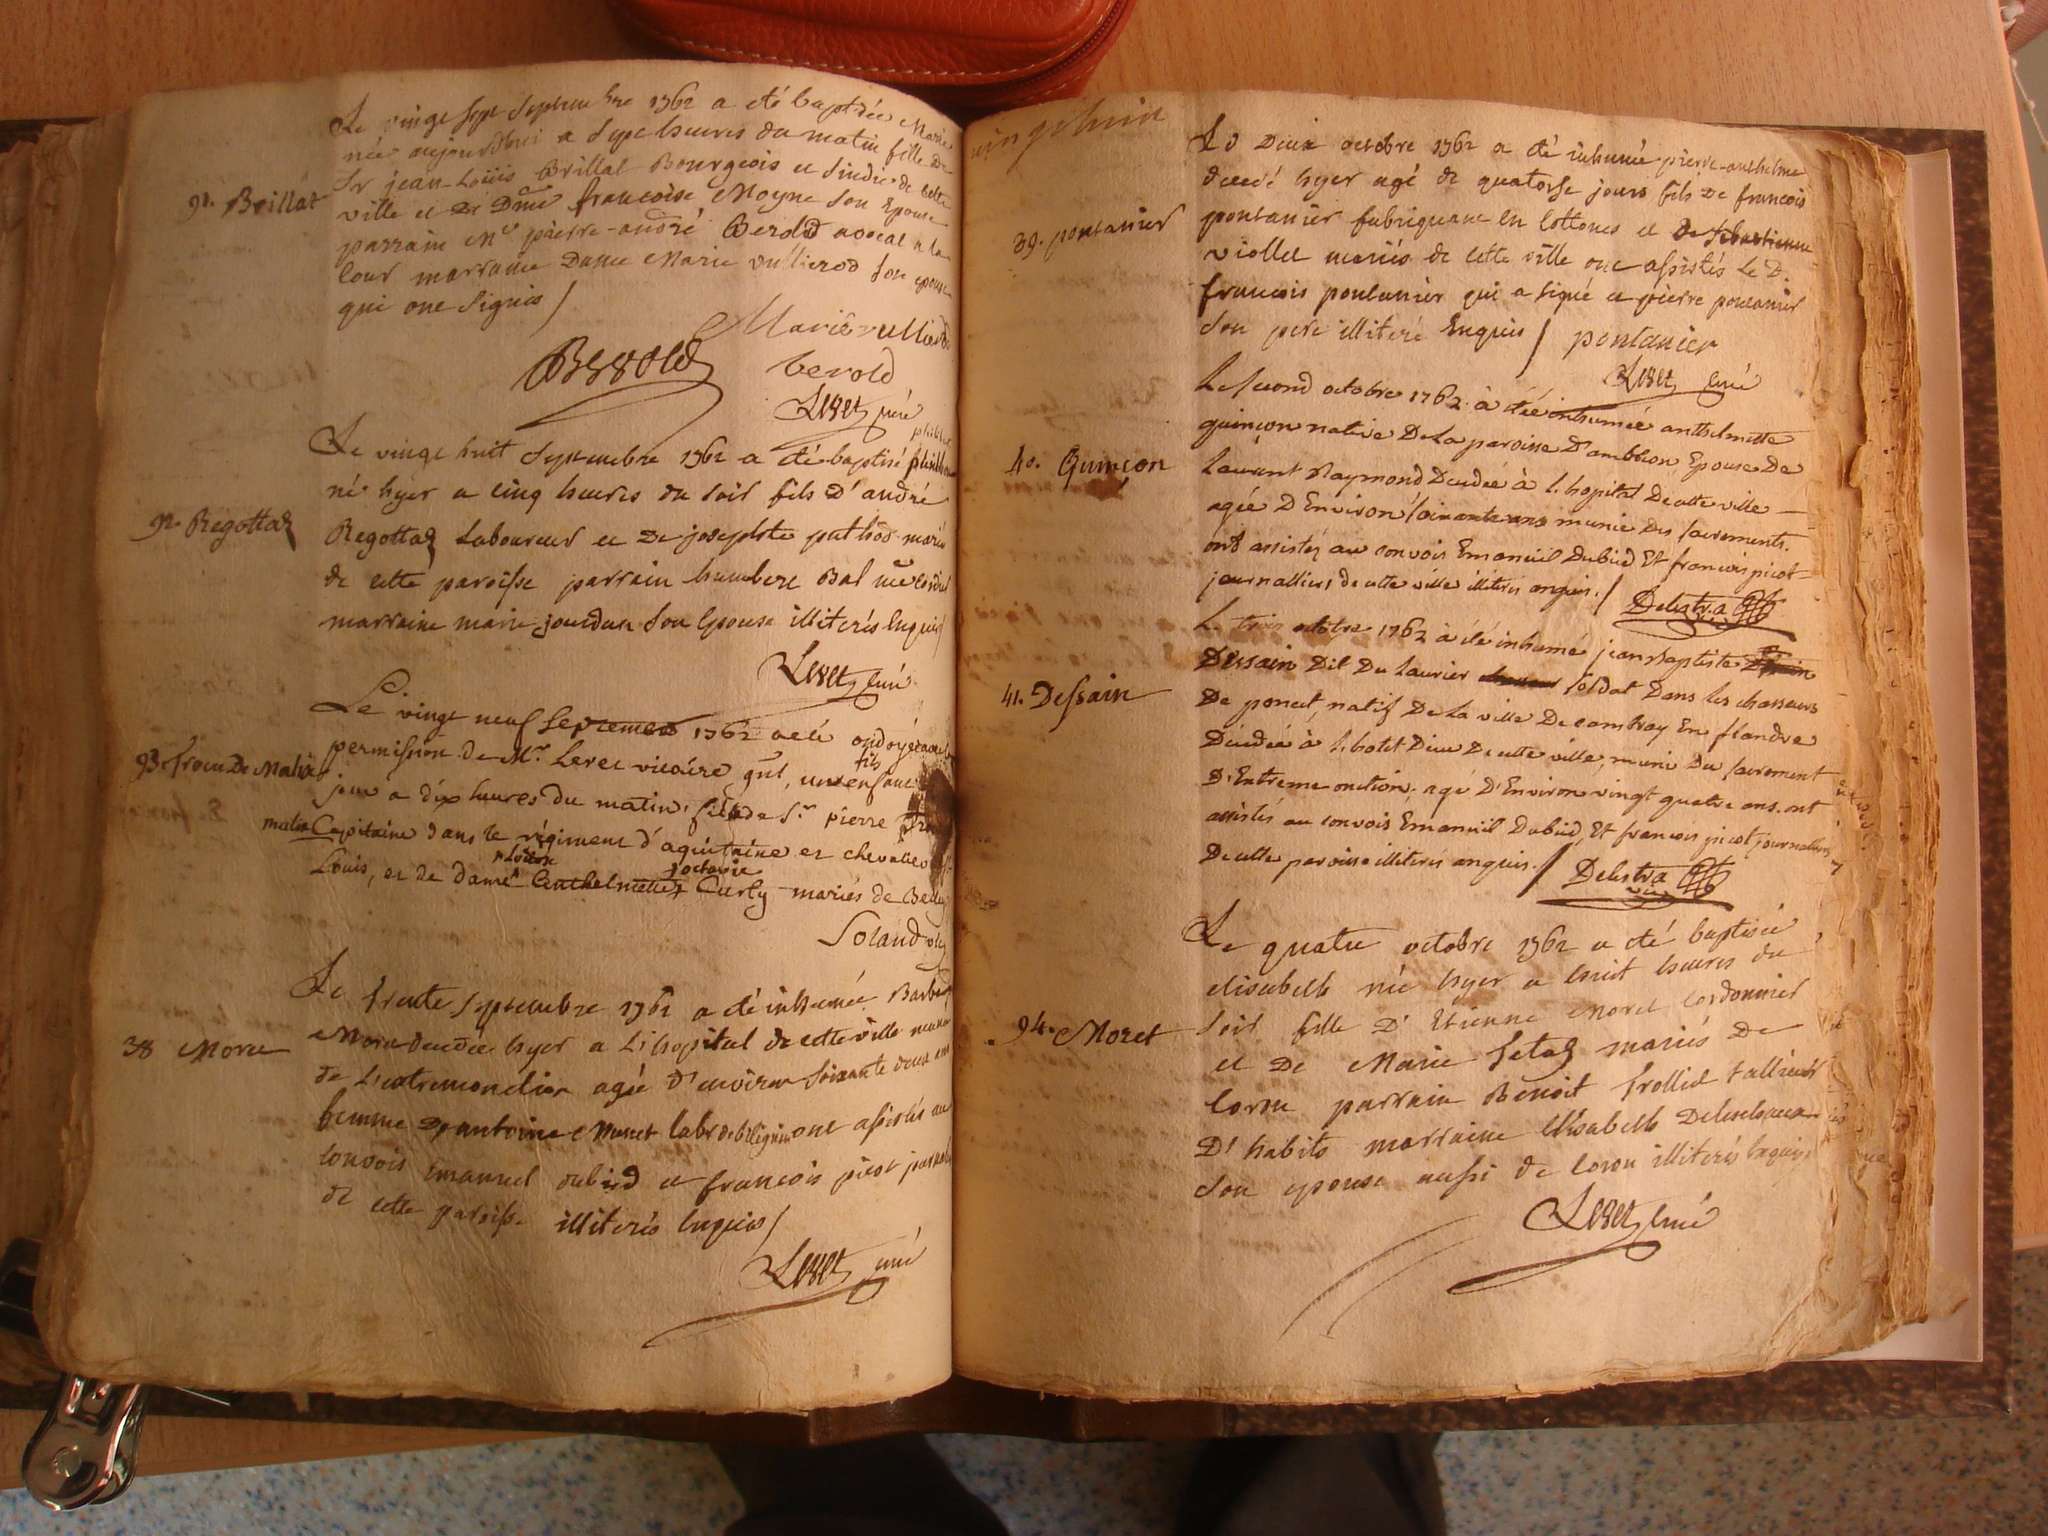 Le vingt sept septembre 1762 a été baptisée Marie
née aujourdhui a sept heures du matin fille De
Sr jean-Loüis Brillat Bourgeois et sindic de cette
91. Brillat
ville et De Dme francoise Moyne son Epouse
parrain Me pierre-andré Berold avocat a la
cour marraine Dame Marie vullierod son epouse
qui ont signés /
Marie vullierod
Berold
berold
Leret curé
Le vingt huit septembre 1762 a été baptisé
né hyer a cinq heures du soir fils D'andré
92. Regottaz
Regottaz Laboureur et De josephte puthod mariés
de cette paroisse parrain humbert Bal
marraine marie jourdan son Epouse illiterés Enquis
Leret curé
Le vingt neuf septembre 1762 a eté ondoyé avec
permission de Mr. Leret vicaire gnl, un enfant
fils
93. froin De Malix
jour a dix heures du matin, fils de Sr. pierre
malix Capitaine dans le régiment d'aquitaine et chevalier
octavie
Louis, et de dame anthelmette Curty mariés de Belley
Le trente septembre 1762 a été inhumée Barbe
38 Moret
decedée hyer a L'hopital de cette ville munie
de L'extremonction agée D'environ soixante deux ans
femme D'antoine Monet labr de beligniu ont assistés au
convois Emanuel dubied et francois picot journaliers
de cette paroisse illiterés Enquis /
Leret curé
Le Deux octobre 1762 a été inhumé pierre-anthelme
decedé hyer agé de quatorse jours fils De francois
39. pontanier
pontanier fabriquant en cottones et De Sebastienne
viollet mariés de cette ville ont assistés Le D.
francois pontanier qui a signé et pierre pontanier
son pere illiteré Enquis / pontanier
Leret curé
Le second octobre 1762 à étée inhumée anthelmette
guinçon native De la paroisse D'ambleon Epouse De
40. Guinçon
Laurent Raymond Decedée à L'hopital De cette ville
agée D'Environ soixante ans munie Des sacrements.
ont assistez au convois Emanuel Dubied Et francois picot
journalliers de cette ville illiterés enquis. /
Delestra
Le trois octobre 1762 à été inhumé jean Baptiste
41. Dessain
Dessain Dit Du Laurier soldat Dans les chasseurs
De poncet natif De la ville De cambray En flandre
Decedé à L'hotel Dieu De cette ville, muni Du sacrement
D'Extreme onction. agé D'Environ vingt quatre ans. ont
assistés au convois Emanuel Dubied, Et francois picot journaliers
De cette paroisse illiterés enquis. /
Delestra
vic
Le quatre octobre 1762 a été baptisée
elisabeth née hyer a huit heures du
94. Moret
soir fille D'Etienne Moret cordonnier
et De Marie fetaz mariés De
Coron parrain Benoit frollied tallieur
D'habits marraine Elisabeth
son epouse aussi de Coron illiterés Enquis
Leret curé